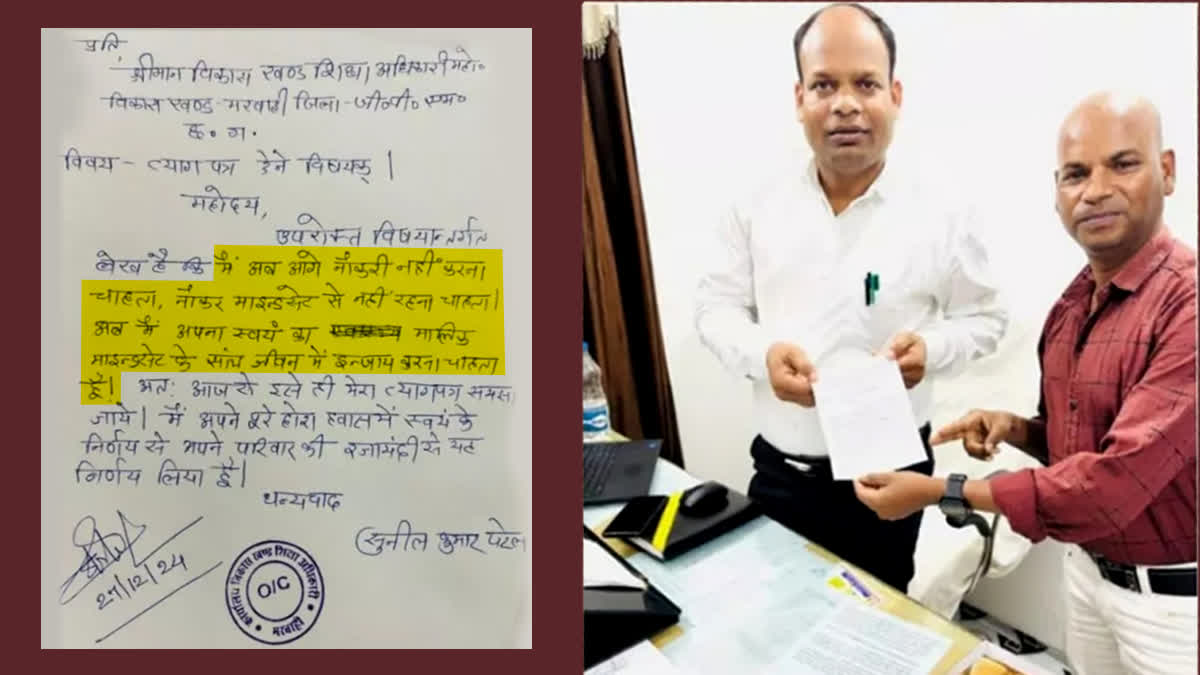 प्रति,
श्रीमान विकास खण्ड शिक्षा अधिकारी महो०
विकास खण्ड-मरवाही जिला-जी०पी० एम०
छ. ग.
विषय - त्याग पत्र देने विषयक् |
महोदय,
उपरोक्त विषयान्तर्गत
लेख है कि मैं अब आगे नौकरी नहीं करना
चाहता, नौकर माइन्डसेट से नहीं रहना चाहता।
अब मैं अपना स्वयं का मालिक
माइन्डसेट के साथ जीवन में इन्जाय करना चाहता
हूँ। अत: आज से इसे ही मेरा त्यागपत्र समझा
जाये। मैं अपने पूरे होश हवास में स्वयं के
निर्णय से अपने परिवार की रजामंदी से यह
निर्णय लिया हूँ।
धन्यवाद
सुनील कुमार पटेल
27/12/24
कार्यालय विकास खण्ड शिक्षा अधिकारी
O/C
मरवाही